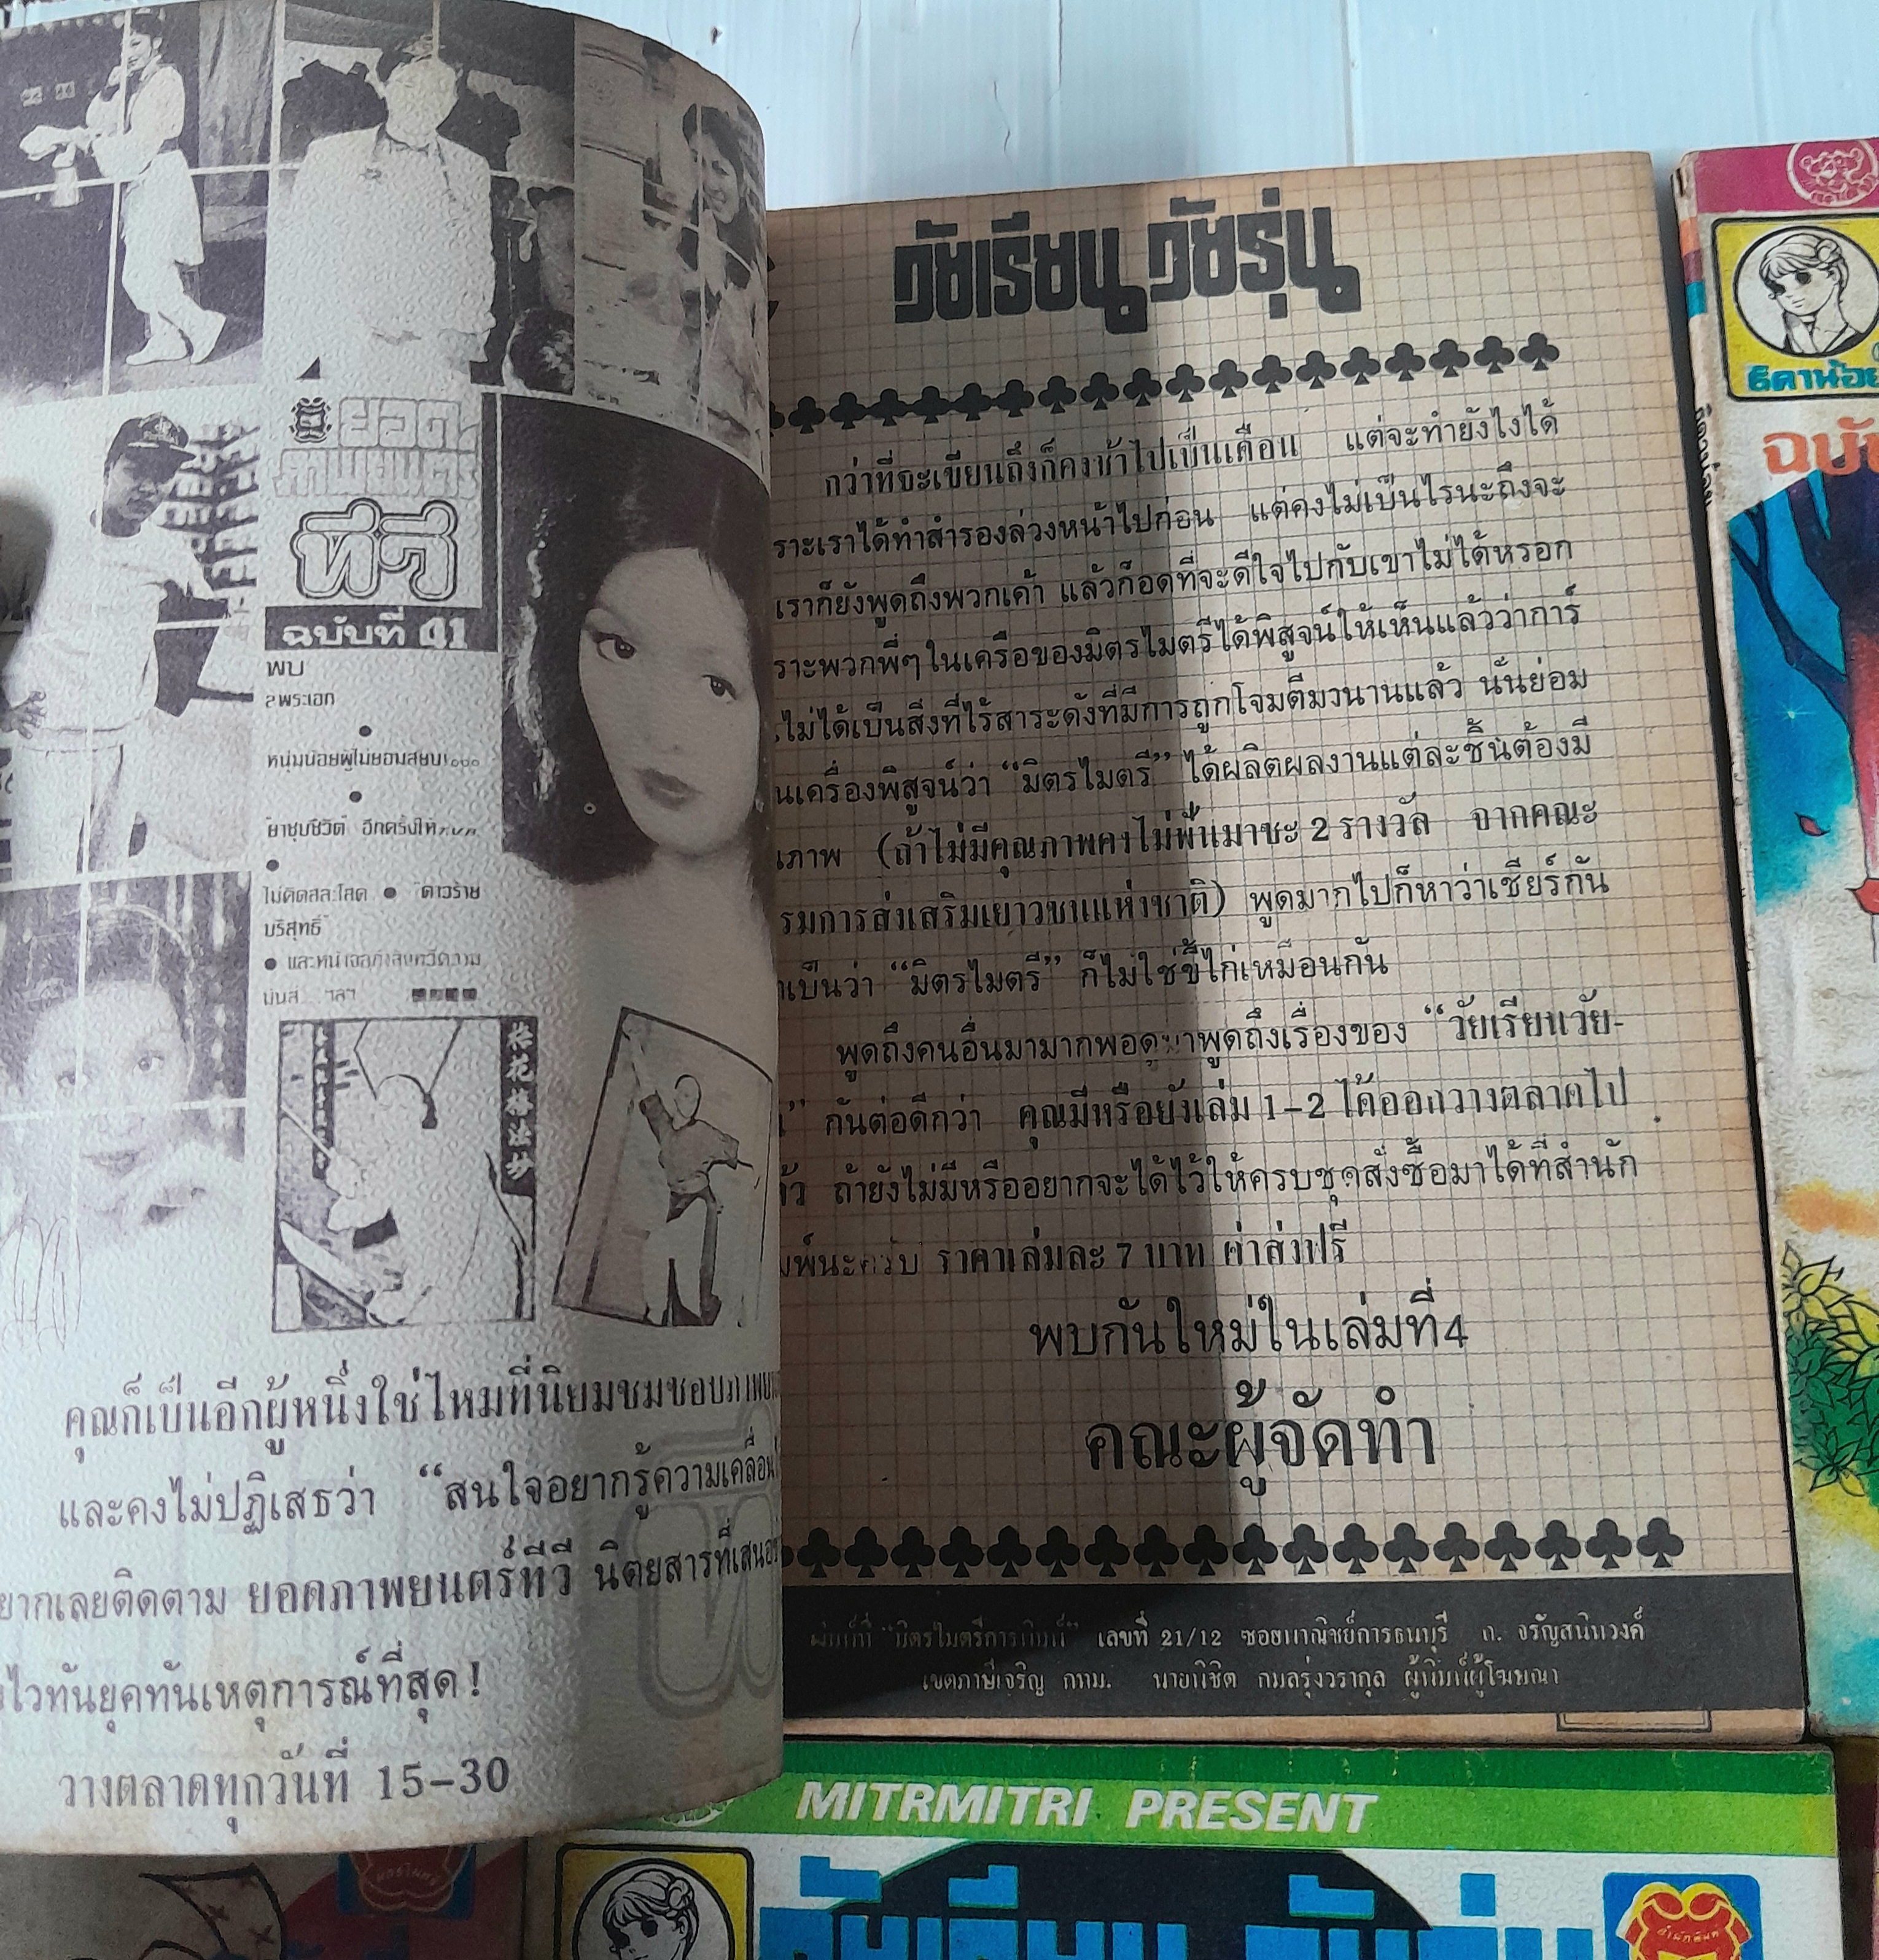 ยอด
ภาพยนตร์
ทีวี
ฉบับที่ 41
พบ
2 พระเอก
หนุ่มน้อยผู้ไม่ยอมสยบ
"ยาชุบชีวิต" อีกครั้งให้
ไม่คิดสละโสด ● "ดาวร้าย
บริสุทธิ์"
คุณก็เป็นอีกผู้หนึ่งใช่ไหมที่นิยมชมชอบภาพ
และคงไม่ปฏิเสธว่า “สนใจอยากรู้ความเคลื่อน
ยากเลยติดตาม ยอดภาพยนตร์ทีวี นิตยสารที่เสนอ
ไวทันยุคทันเหตุการณ์ที่สุด!
วางตลาดทุกวันที่ 15-30
วัยเรียน วัยรุ่น
กว่าที่จะเขียนถึงก็คงช้าไปเป็นเดือน แต่จะทำยังไงได้
ราะเราได้ทำสำรองล่วงหน้าไปก่อน แต่คงไม่เป็นไรนะถึงจะ
เราก็ยังพูดถึงพวกเค้า แล้วก็อดที่จะดีใจไปกับเขาไม่ได้หรอก
ราะพวกพี่ๆในเครือของมิตรไมตรีได้พิสูจน์ให้เห็นแล้วว่าการ์
ไม่ได้เป็นสิ่งที่ไร้สาระดังที่มีการถูกโจมตีมานานแล้ว นั่นย่อม
นเครื่องพิสูจน์ว่า “มิตรไมตรี” ได้ผลิตผลงานแต่ละชิ้นต้องมี
ภาพ (ถ้าไม่มีคุณภาพคงไม่ฟันมาซะ 2 รางวัล จากคณะ
รมการส่งเสริมเยาวชนแห่งชาติ) พูดมากไปก็หาว่าเชียร์กัน
เป็นว่า “มิตรไมตรี” ก็ไม่ใช่ขี้ไก่เหมือนกัน
พูดถึงคนอื่นมามากพอดู มาพูดถึงเรื่องของ “วัยเรียนวัย-
” กันต่อดีกว่า คุณมีหรือยังเล่ม 1-2 ได้ออกวางตลาดไป
ถ้ายังไม่มีหรืออยากจะได้ไว้ให้ครบชุดสั่งซื้อมาได้ที่สำนัก
มพ์นะครับ ราคาเล่มละ 7 บาท ค่าส่งฟรี
พบกันใหม่ในเล่มที่4
คณะผู้จัดทำ
พิมพ์ที่ "มิตรไมตรีการพิมพ์" เลขที่ 21/12 ซอยพาณิชย์การธนบุรี ถ. จรัญสนิทวงศ์
เขตภาษีเจริญ กทม. นายพิชิต กมลรุ่งวรากุล ผู้พิมพ์ผู้โฆษณา
ฉบับ
MITRMITRI PRESENT
วัยเรียน วัยรุ่น